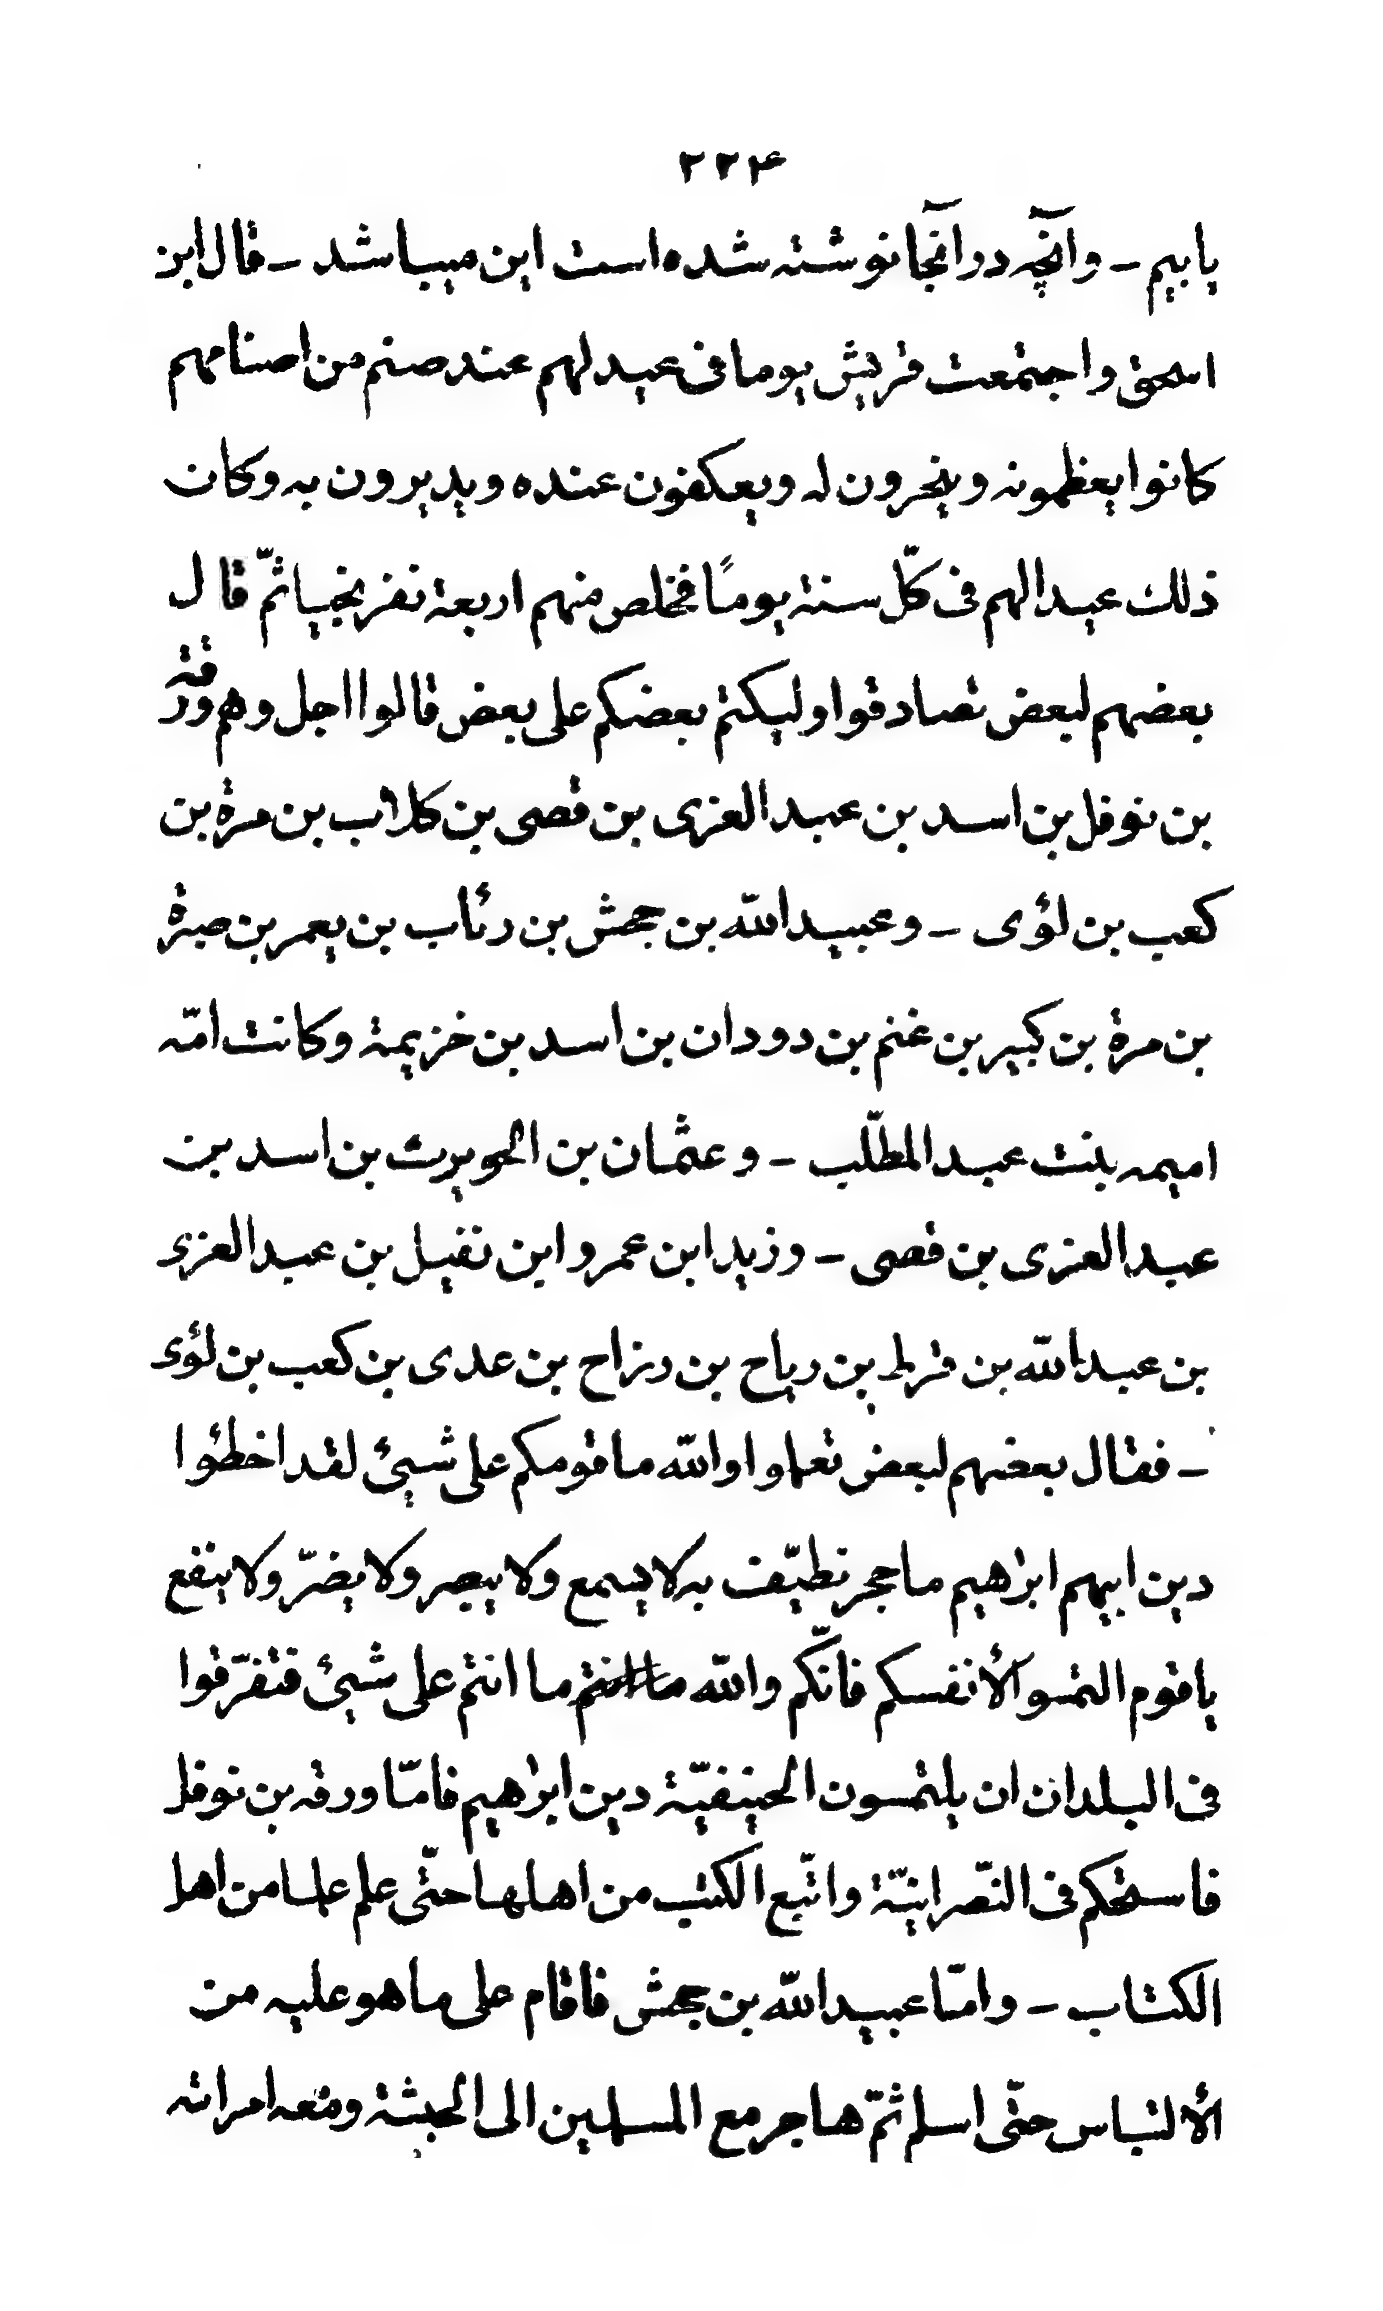 ۲۲۴
یابیم - وآنچه در آنجا نوشته شده است این میباشد - قال ابن
اسحق واجتمعت قریش یوما فی عید لهم عند صنم من اصنامهم
کانوا یعظمونه وینحرون له ویعکفون عنده ویدیرون به وکان
ذلک عیدا لهم فی کلّ سنة یومًا فخلص منهم اربعة نفر نجیا ثمّ قال
بعضهم لبعض تصادقوا ولیکتم بعضکم علی بعض قالوا اجل وهم ورقة
بن نوفل بن اسد بن عبد العزی بن قصی بن کلاب بن مرة بن
کعب بن لؤی - وعبید الله بن جحش بن رئاب بن یعمر بن صبرة
بن مرة بن کبیر بن غنم بن دودان بن اسد بن خزیمة وکانت امّه
امیمه بنت عبد المطّلب - وعثمان بن الحویرث بن اسد بن
عبد العزی بن قصی - وزید ابن عمرو ابن نفیل بن عبد العزی
بن عبد الله بن قرط بن ریاح بن رزاح بن عدی بن کعب بن لؤی
- فقال بعضهم لبعض تعلموا والله ما قومکم علی شیئ لقد اخطئوا
دین ابیهم ابرٰهیم ما حجر نطیّف به لا یسمع ولا یبصر ولا یضرّ ولا ینفع
یا قوم التمسوا لأنفسکم فانّکم والله ما انتم ما انتم علی شیئ فتفرّقوا
فی البلدان ان یلتمسون الحینفیّة دین ابرٰهیم فامّا ورقه بن نوفل
فاستحکم فی النّصرانیّة واتّبع الکتب من اهلها حتّی علم علما من اهل
الکتاب - وامّا عبید الله بن جحش فاقام علی ما هو علیه من
الألتباس حتّی اسلم ثمّ هاجر مع المسلمین الی الحبشة ومعه امراته